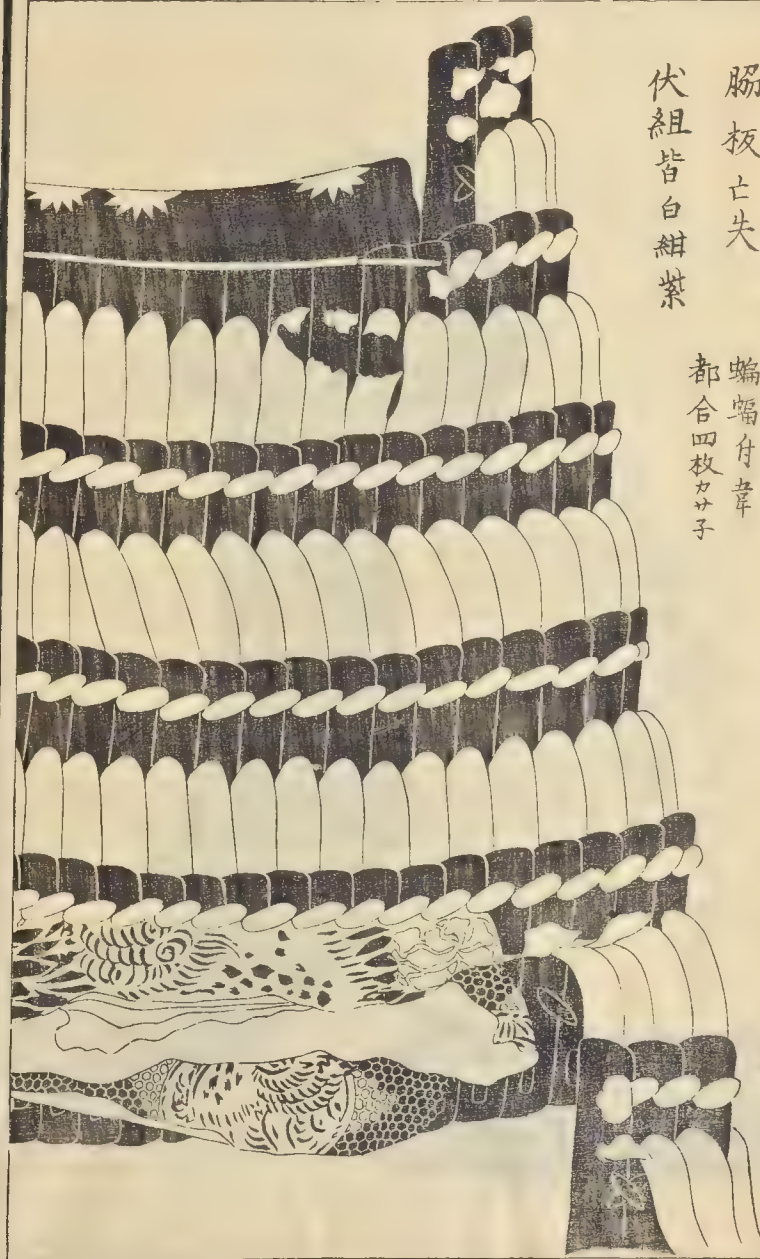 脇板亡失
伏組皆白紺紫
蝙蝠付韋
都合四枚カサ子